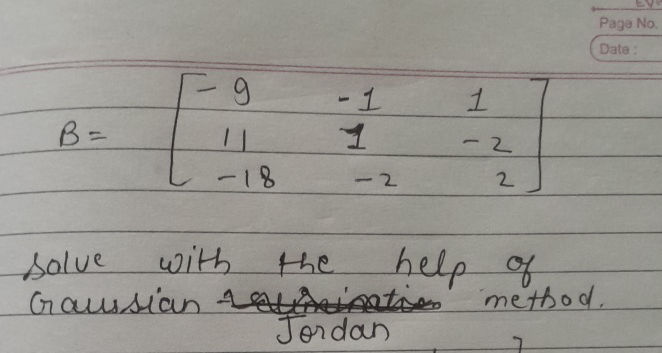 Page No.
Date :
- 9 -1 1
B = 11 1 -2
-18 -2 2
Solve with the help of
Gaussian method.
Jordan